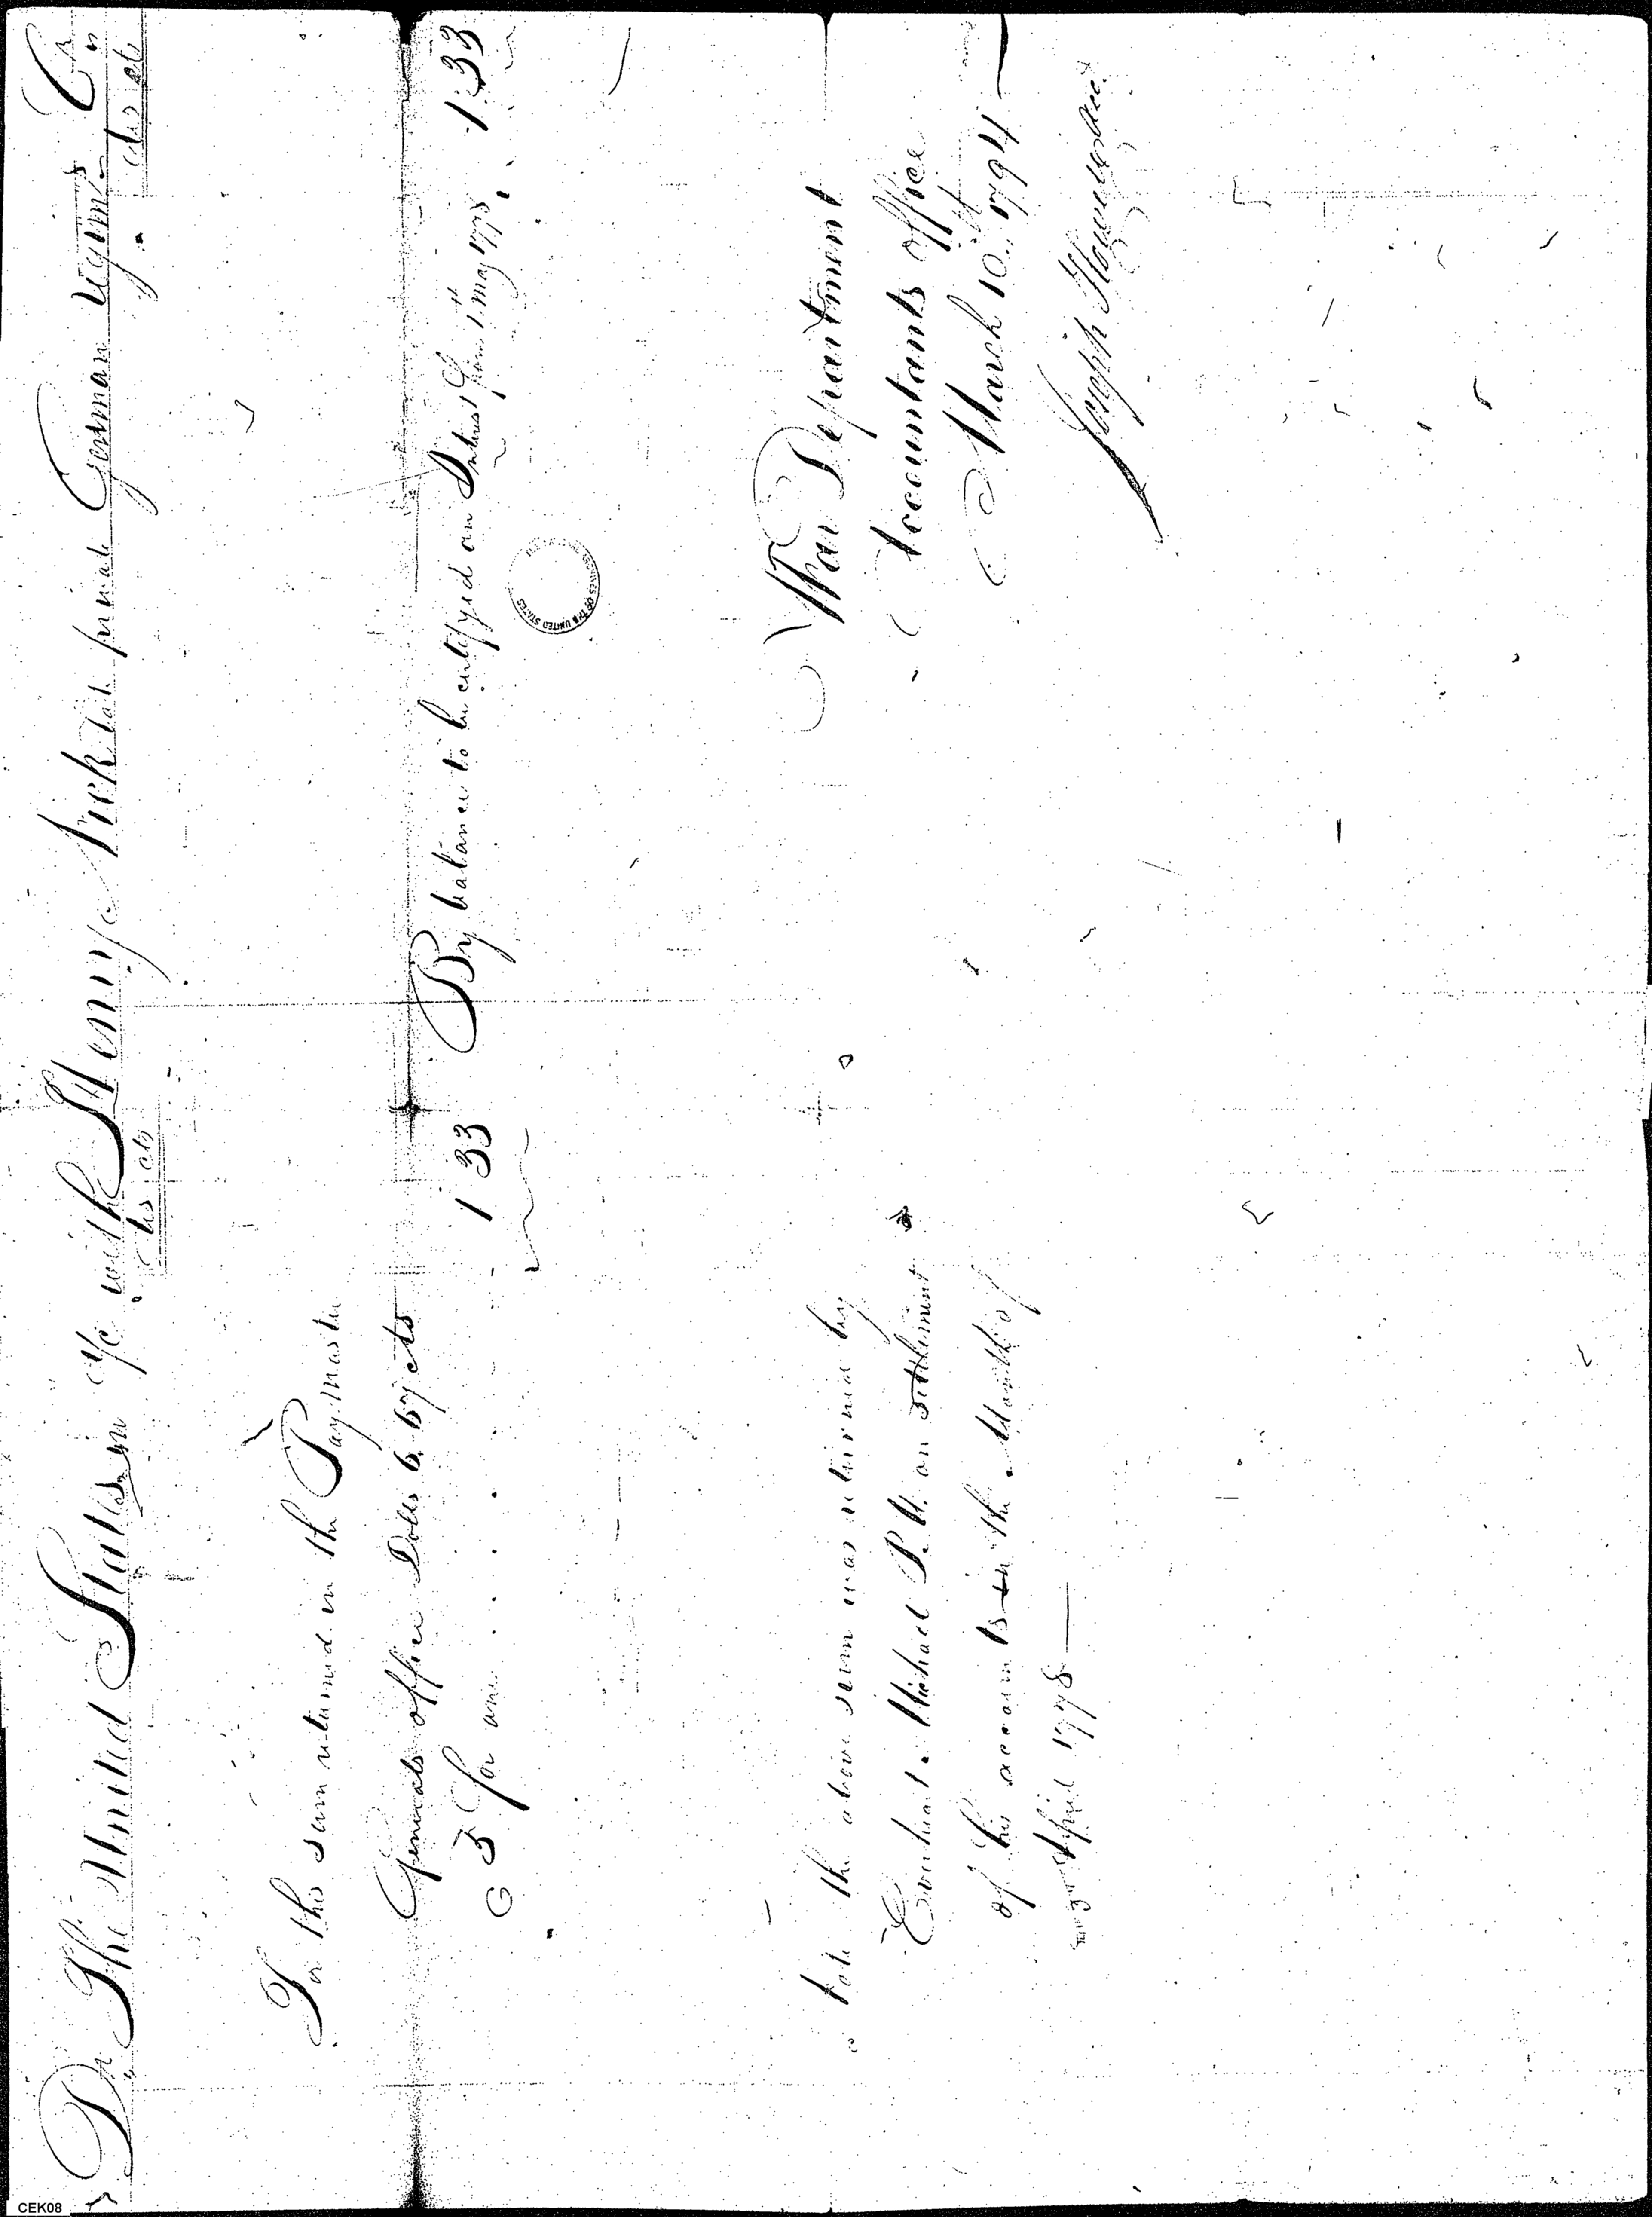 Dr The United States in a/c with Henry Nicholas private German regimt Cr
dls cts
dls cts
For this sum returned in the Paymaster
Generals office Dolls 6.67 cts
@ 5 for one . . . . . 1 33
By balance to be certifyed on Interest from 1st May 1778 " 1.33
Note the above sum was returned by
Everhart Michael P.M. on settlement
of his accounts in the Month of
April 1778
War Department
Accountants office
March 10th 1794
Joseph Howell Acct
ARCHIVES OF THE UNITED STATES
CEK08